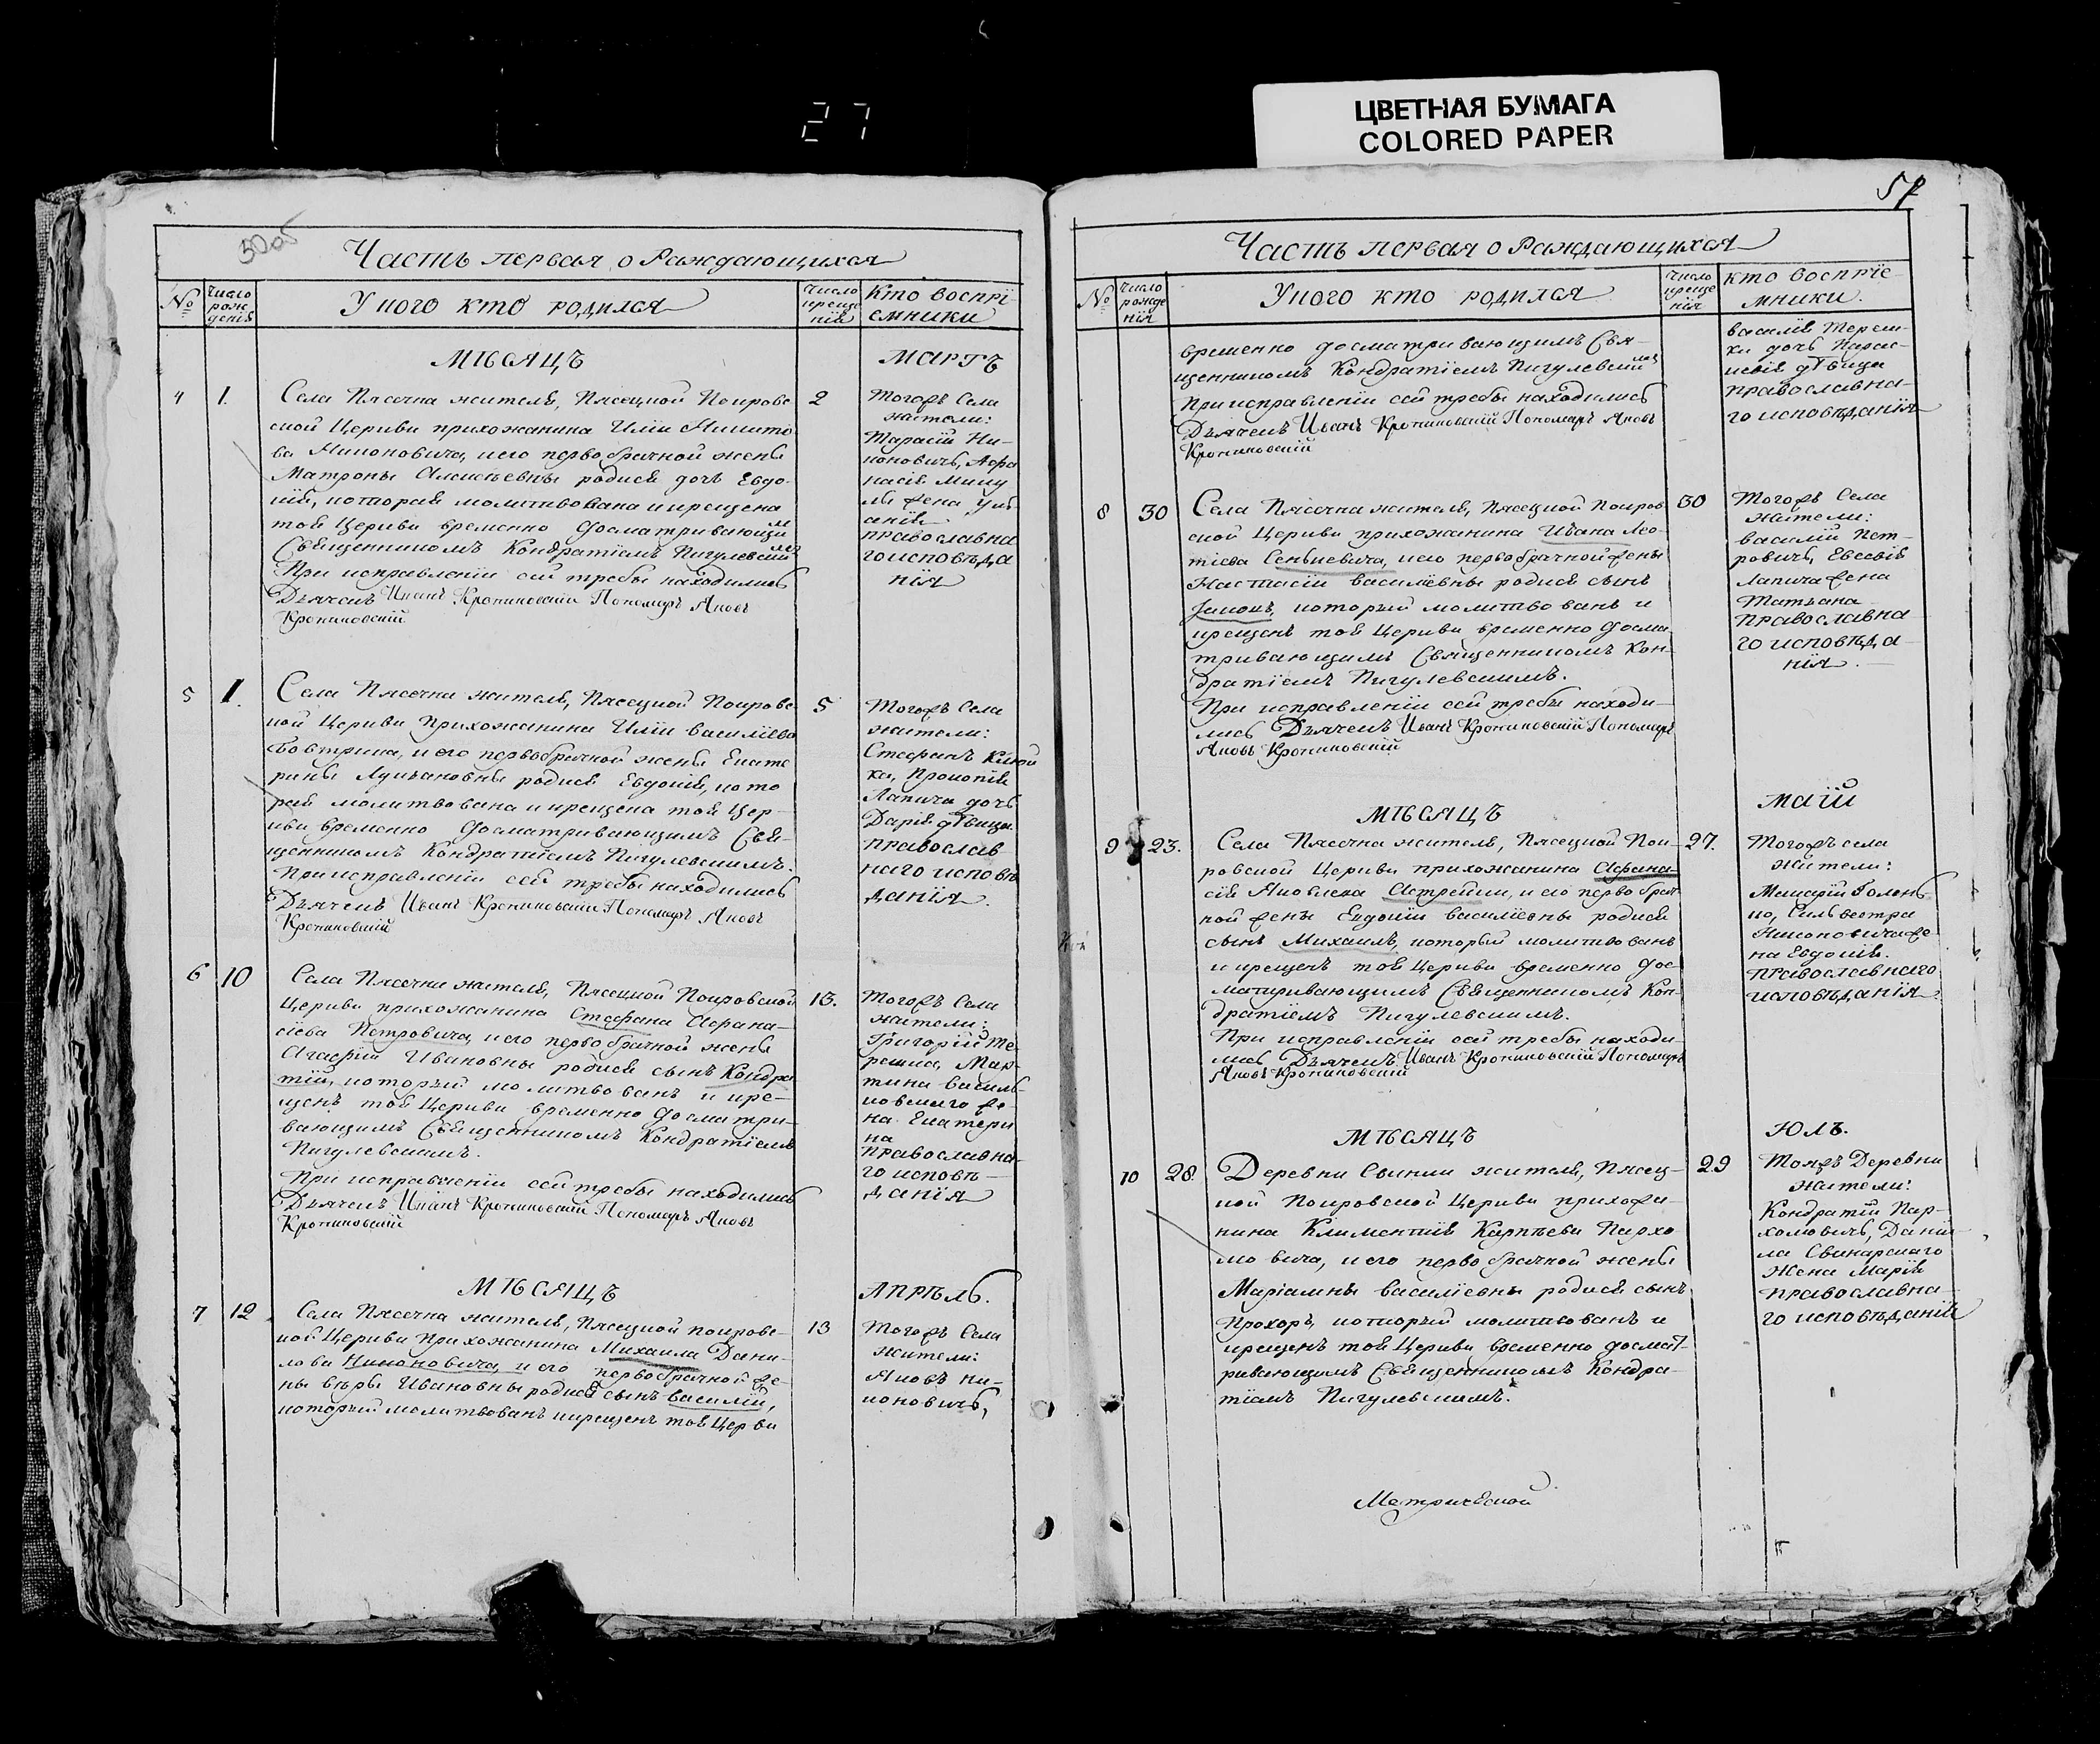 27
ЦВЕТНАЯ БУМАГА
COLORED PAPER
50 об
Часть первая о Раждающихся
№
Число рождения
У кого кто родился
Число крещенія
Кто воспріемники
МѢСЯЦЪ
МАРТЪ
4
1.
Села Пясечна жителя, Пясецкой Покровс
кой Церкви прихожанина Иліи Никито
ва Никоновича, и его первобрачной жены
Матроны Алексѣевны родися дочь Евдо
кія, которая молитвована и крещена
той Церкви временно досматривающим
Священникомъ Кондратіемъ Пигулевским
При исправленіи сей требы находились
Дьячекъ Иванъ Крониковскій Пономарь Яковъ
Крониковскій
2
Тогожъ Села
жители:
Тарасій Ни-
коновичъ, Афа
насія
жена
православна
го исповѣда
нія
5
1.
Села Пясечна жителя, Пясецкой Покровс
кой Церкви прихожанина Иліи Василіева
и его первобрачной жены Екате
рины Лукьяновны родися Евдокія, кото
рая молитвована и крещена той Цер-
кви временно досматривающимъ Свя-
щенникомъ Кондратіемъ Пигулевскимъ.
При исправленіи сей требы находились
Дьячекъ Иванъ Крониковскій Пономарь Яковъ
Крониковскій
5
Тогожъ Села
жители:
Стефанъ
ка, Прокопія
Лапича дочь
Дарія дѣвица
православ
наго исповѣ
данія.
6
10
Села Пясечна жителя, Пясецкой Покровской
Церкви прихожанина Стефана Афана-
сіева Петровича, и его первобрачной жены
Агафіи Ивановны родися сынъ Кондра
тій, который молитвованъ и кре-
щенъ той Церкви временно досматри-
вающимъ Священникомъ Кондратіемъ
Пигулевскимъ.
При исправленіи сей требы находились
Дьячекъ Иванъ Крониковскій Пономарь Яковъ
Крониковскій
13.
Тогожъ Села
жители:
Григорій Те-
решка, Мар-
тина Василь
ковскаго же-
на Екатери
на
православна-
го исповѣ-
данія
МѢСЯЦЪ
АПРѢЛЬ.
7
12
Села Пясечна жителя, Пясецкой Покровс-
кой Церкви прихожанина Михаила Дани-
лова Никоновича, и его первобрачной же-
ны Вѣры Ивановны родися сынъ Василій,
который молитвованъ и крещенъ той Церкви
13
Тогожъ Села
жители:
Яковъ Ни-
коновичъ,
57
Часть первая о Раждающихся
№
Число рожденія
У кого кто родился
Число крещенія
Кто воспріемники.
временно досматривающимъ Свя-
щенникомъ Кондратіемъ Пигулевским
При исправленіи сей требы находились
Дьячекъ Иванъ Крониковскій Пономарь Яковъ
Крониковскій
Василія Тереш-
ки дочь Парас-
кевія дѣвица
православна-
го исповѣданія
8
30
Села Пясечна жителя, Пясецкой Покров
ской Церкви прихожанина Ивана Лео-
тіева Сенкевича, и его первобрачной жены
Настасіи Василіевны родися сынъ
который молитвованъ и
крещенъ той Церкви временно досма
тривающимъ Священникомъ Кон-
дратіемъ Пигулевскимъ.
При исправленіи сей требы находи-
лись Дьячекъ Иванъ Крониковскій Пономарь
Яковъ Крониковскій
30
Тогожъ Села
жители:
Василій Пет-
ровичъ, Евсевія
Лапича жена
Татьяна
православна
го исповѣда-
нія.
МѢСЯЦЪ
МАІЙ
9
23.
Села Пясечна жителя, Пясецкой Пок-
ровской Церкви прихожанина Афана-
сія Яковлева Астрейки, и его первобрач-
ной жены Евдокіи Василіевны родися
сынъ Михаилъ, который молитвованъ
и крещенъ той Церкви временно дос-
матривающимъ Священникомъ Кон-
дратіемъ Пигулевскимъ.
При исправленіи сей требы находи-
лись Дьячекъ Иванъ Крониковскій Пономарь
Яковъ Крониковскій
27.
Тогожъ села
жители:
Сильвестра
Никоновича же-
на Евдокія.
православнаго
исповѣданія.
МѢСЯЦЪ
ЮЛЬ.
10
28.
Деревни Свинки жителя, Пясец-
кой Покровской Церкви прихожа-
нина Климентія Карпѣева Пархо
мовича, и его первобрачной жены
Маріанны Василіевны родися сынъ
Прохоръ, который молитвованъ и
крещенъ той Церкви временно досмат-
ривающимъ Священникомъ Кондра-
тіемъ Пигулевскимъ.
29
Тояжъ Деревни
жители:
Кондратій Пар-
хомовичъ, Дании-
ла Свинарскаго
Жена Марія
православна-
го исповѣданія
Метрической